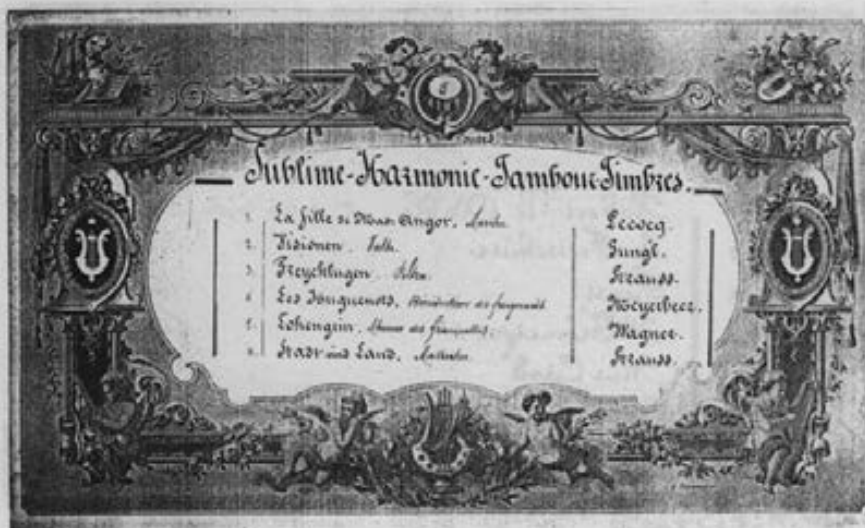 8
Sublime-Harmonie-Tambour-Timbres.
1. La fille de Mad. Angot, Marche. Lecocq.
2. Visionen. Valse. Gungl.
3. Freykugeln. Polka. Strauss.
4. Les Huguenots, Bénédiction des poignards Meyerbeer.
5. Lohengrin, Wagner.
6. Stadt und Land, Mazurka. Strauss.